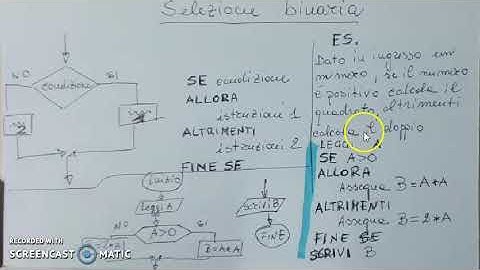 Selezione binaria
NO
SI
condizione
SE condizione
ALLORA
istruzioni 1
ALTRIMENTI
istruzioni 2
FINE SE
inizio
leggi A
NO
SI
A>0
B=A*A
scrivi B
FINE
ES.
Dato in ingresso un
numero, se il numero
è positivo calcola il
quadrato, altrimenti
calcola il doppio
LEGGI A
SE A>0
ALLORA
Assegna B=A*A
ALTRIMENTI
Assegna B=2*A
FINE SE
SCRIVI B
RECORDED WITH
SCREENCAST MATIC